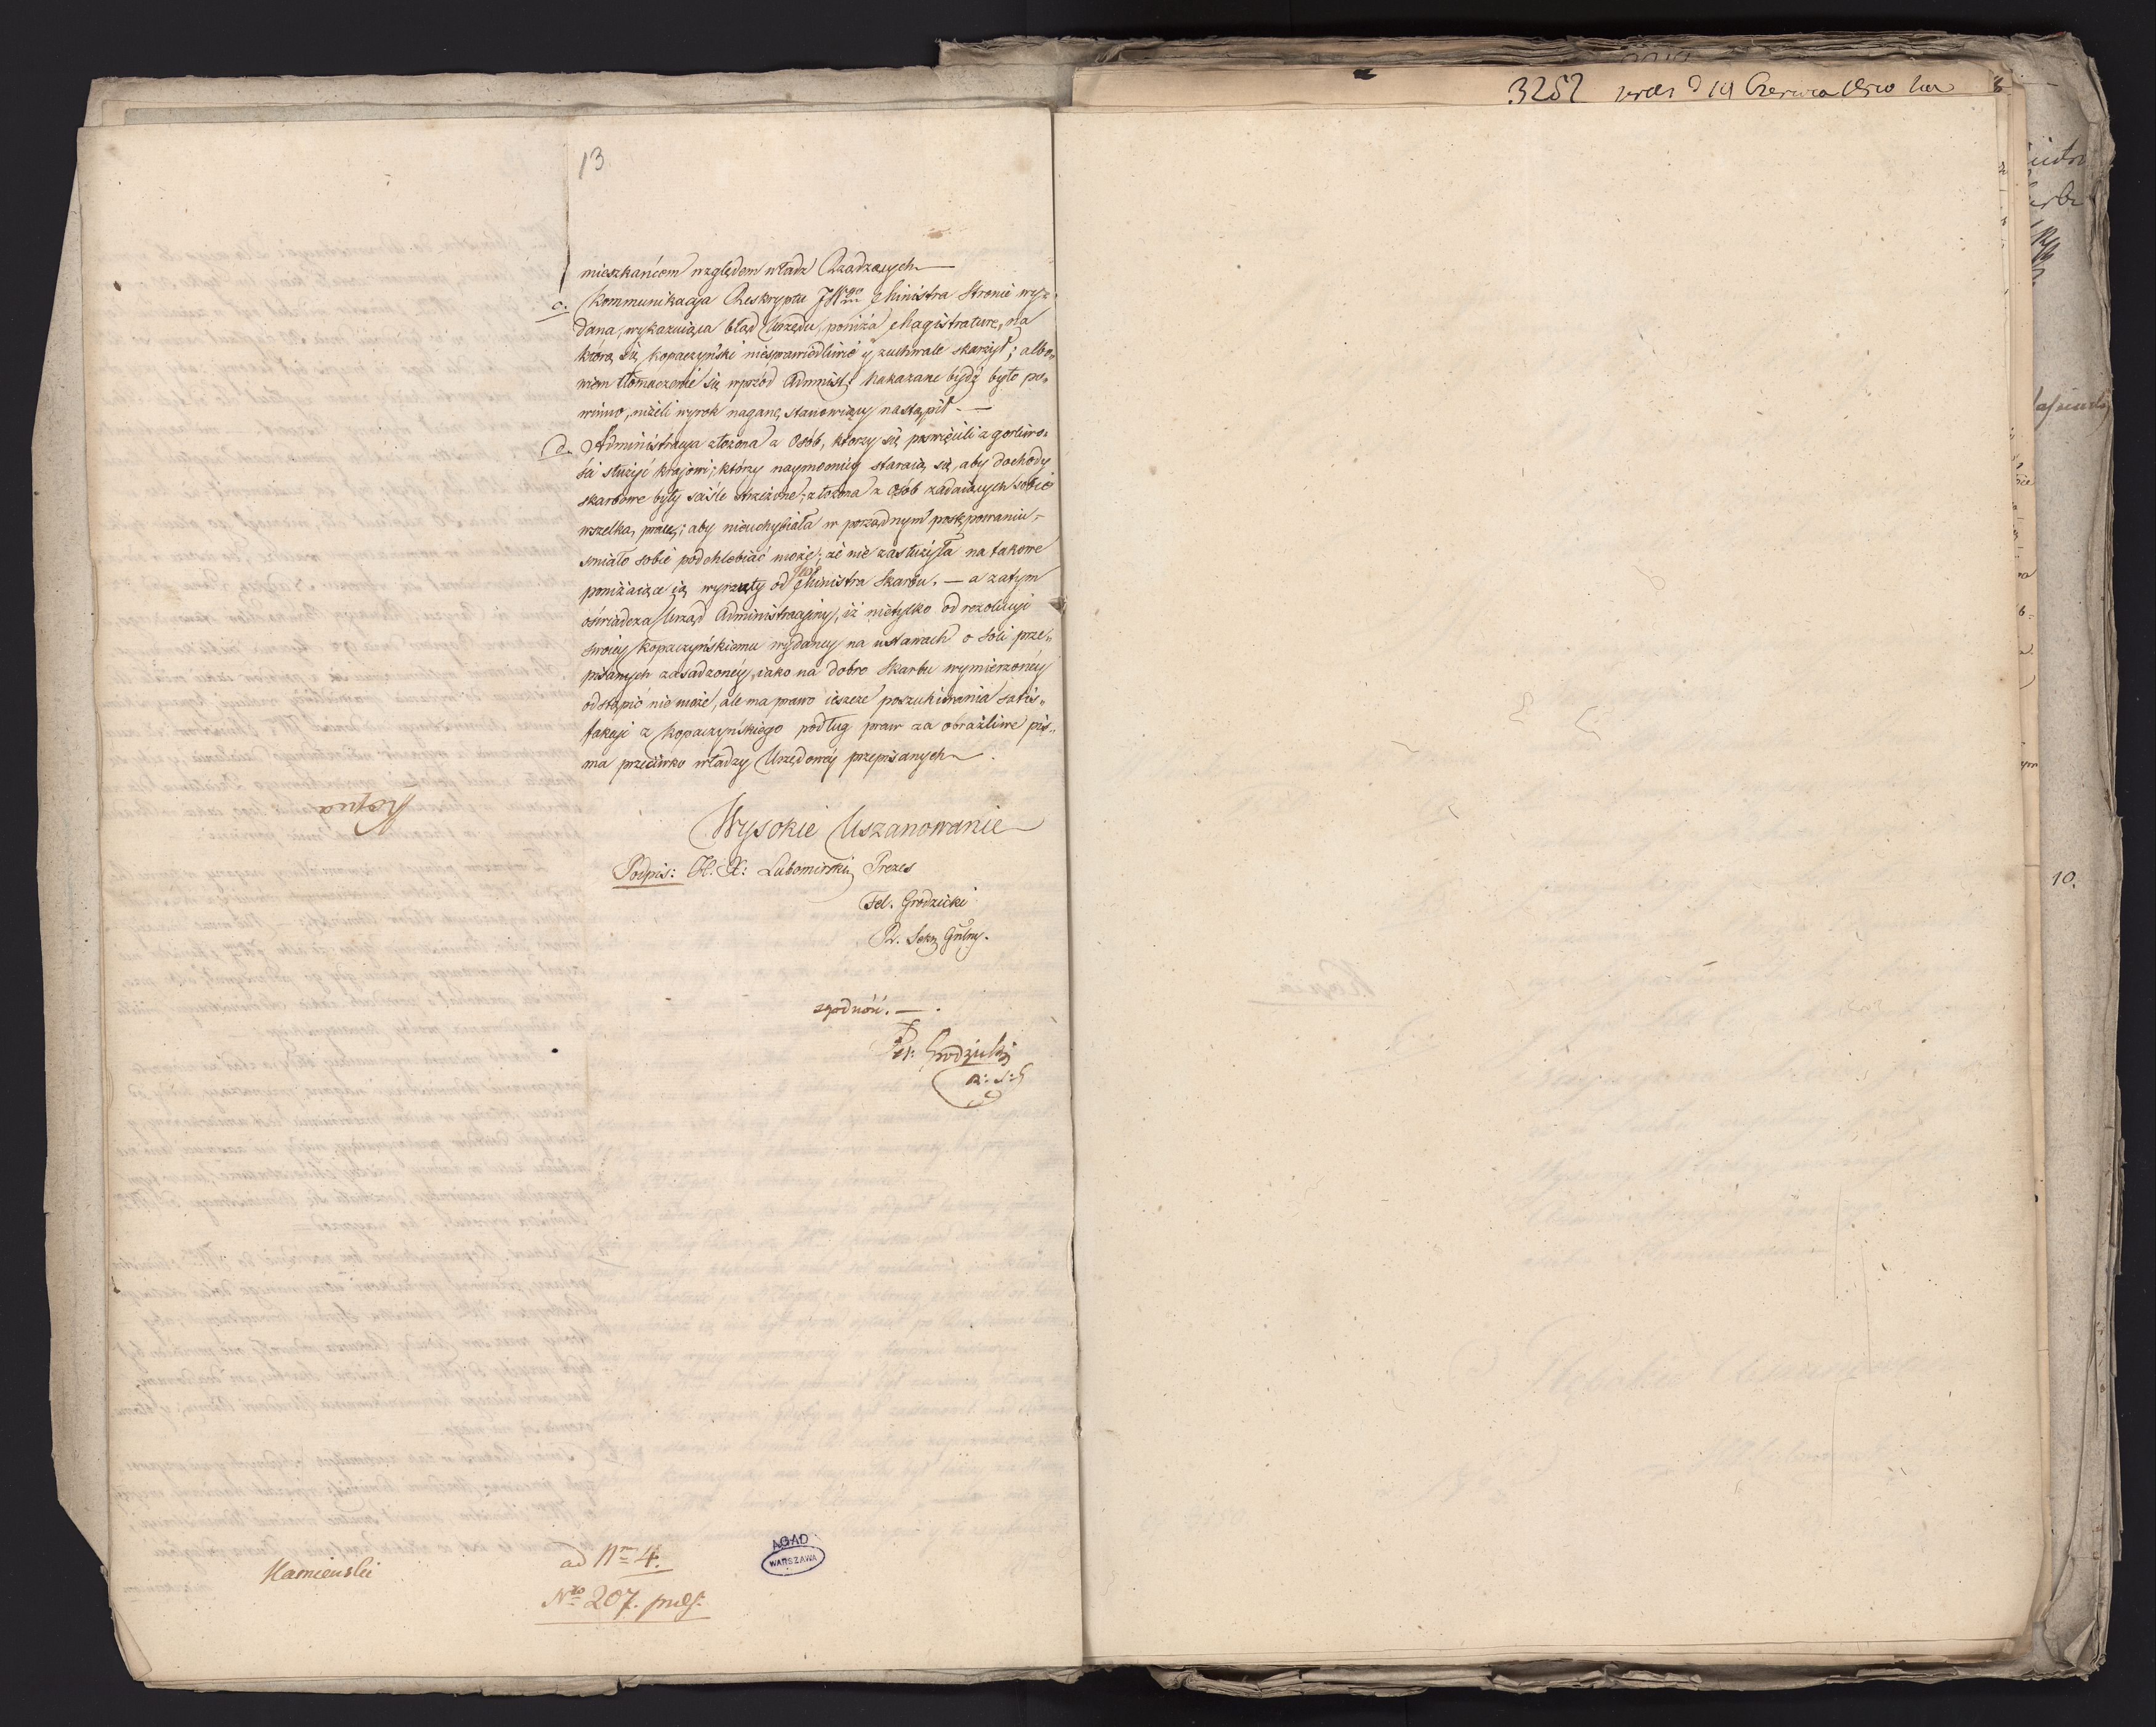 13
mieszkańcom względem władz Rządzących
c. Kommunikacya Reskryptu JWgo Ministra Stronie wy-
dana, wykazuiąca błąd Urzędu, poniża Magistraturę, na
którą się Kopaczyński niesprawiedliwie y zuchwale skarżył; albo„
wiem tłomaczenie się wprzód Administ: nakazane bydź było po„
winno, niżeli wyrok naganę stanowiący nastąpił —
d. Administracya złożona z Osób, ktorzy się poswięcili z gorliwo„
ści służyć krajowi; którzy naymocniey staraią się, aby dochody
skarbowe były ściśle strzeżone; złożona z osób zadaiących sobie
wszelką pracę; aby nieuchybiała w porządnym postępowaniu,
smiało sobie podchlebiać może; że nie zasłużyła na takowe
poniżaiące ią wyrzuty od JWo Ministra Skarbu. — a zatym
oświadcza Urząd Administracyiny, iż nietylko od rezolucyi
swoiey Kopaczyńskiemu wydaney na ustawach o soli prze„
pisanych zasadzoney, iako na dobro Skarbu wymierzoney
odstąpić nie może, ale ma prawo ieszcze poszukiwania satis„
fakcyi z Kopaczyńskiego podług praw za obraźliwe pis„
ma przeciwko władzy Urzędowey przepisanych.
Wysokie Uszanowanie
Podpis: H. X: Lubomirski Prezes
Fel. Grodzicki
R. Sekr Gnlny.
zgodność. —
Fel: Grodzicki
R: S: G
Kopia
Kamienski
ad Nm 4.
Nro 207. praes:
AGAD
WARSZAWA
3252 praes d 19 Czerwca
10.